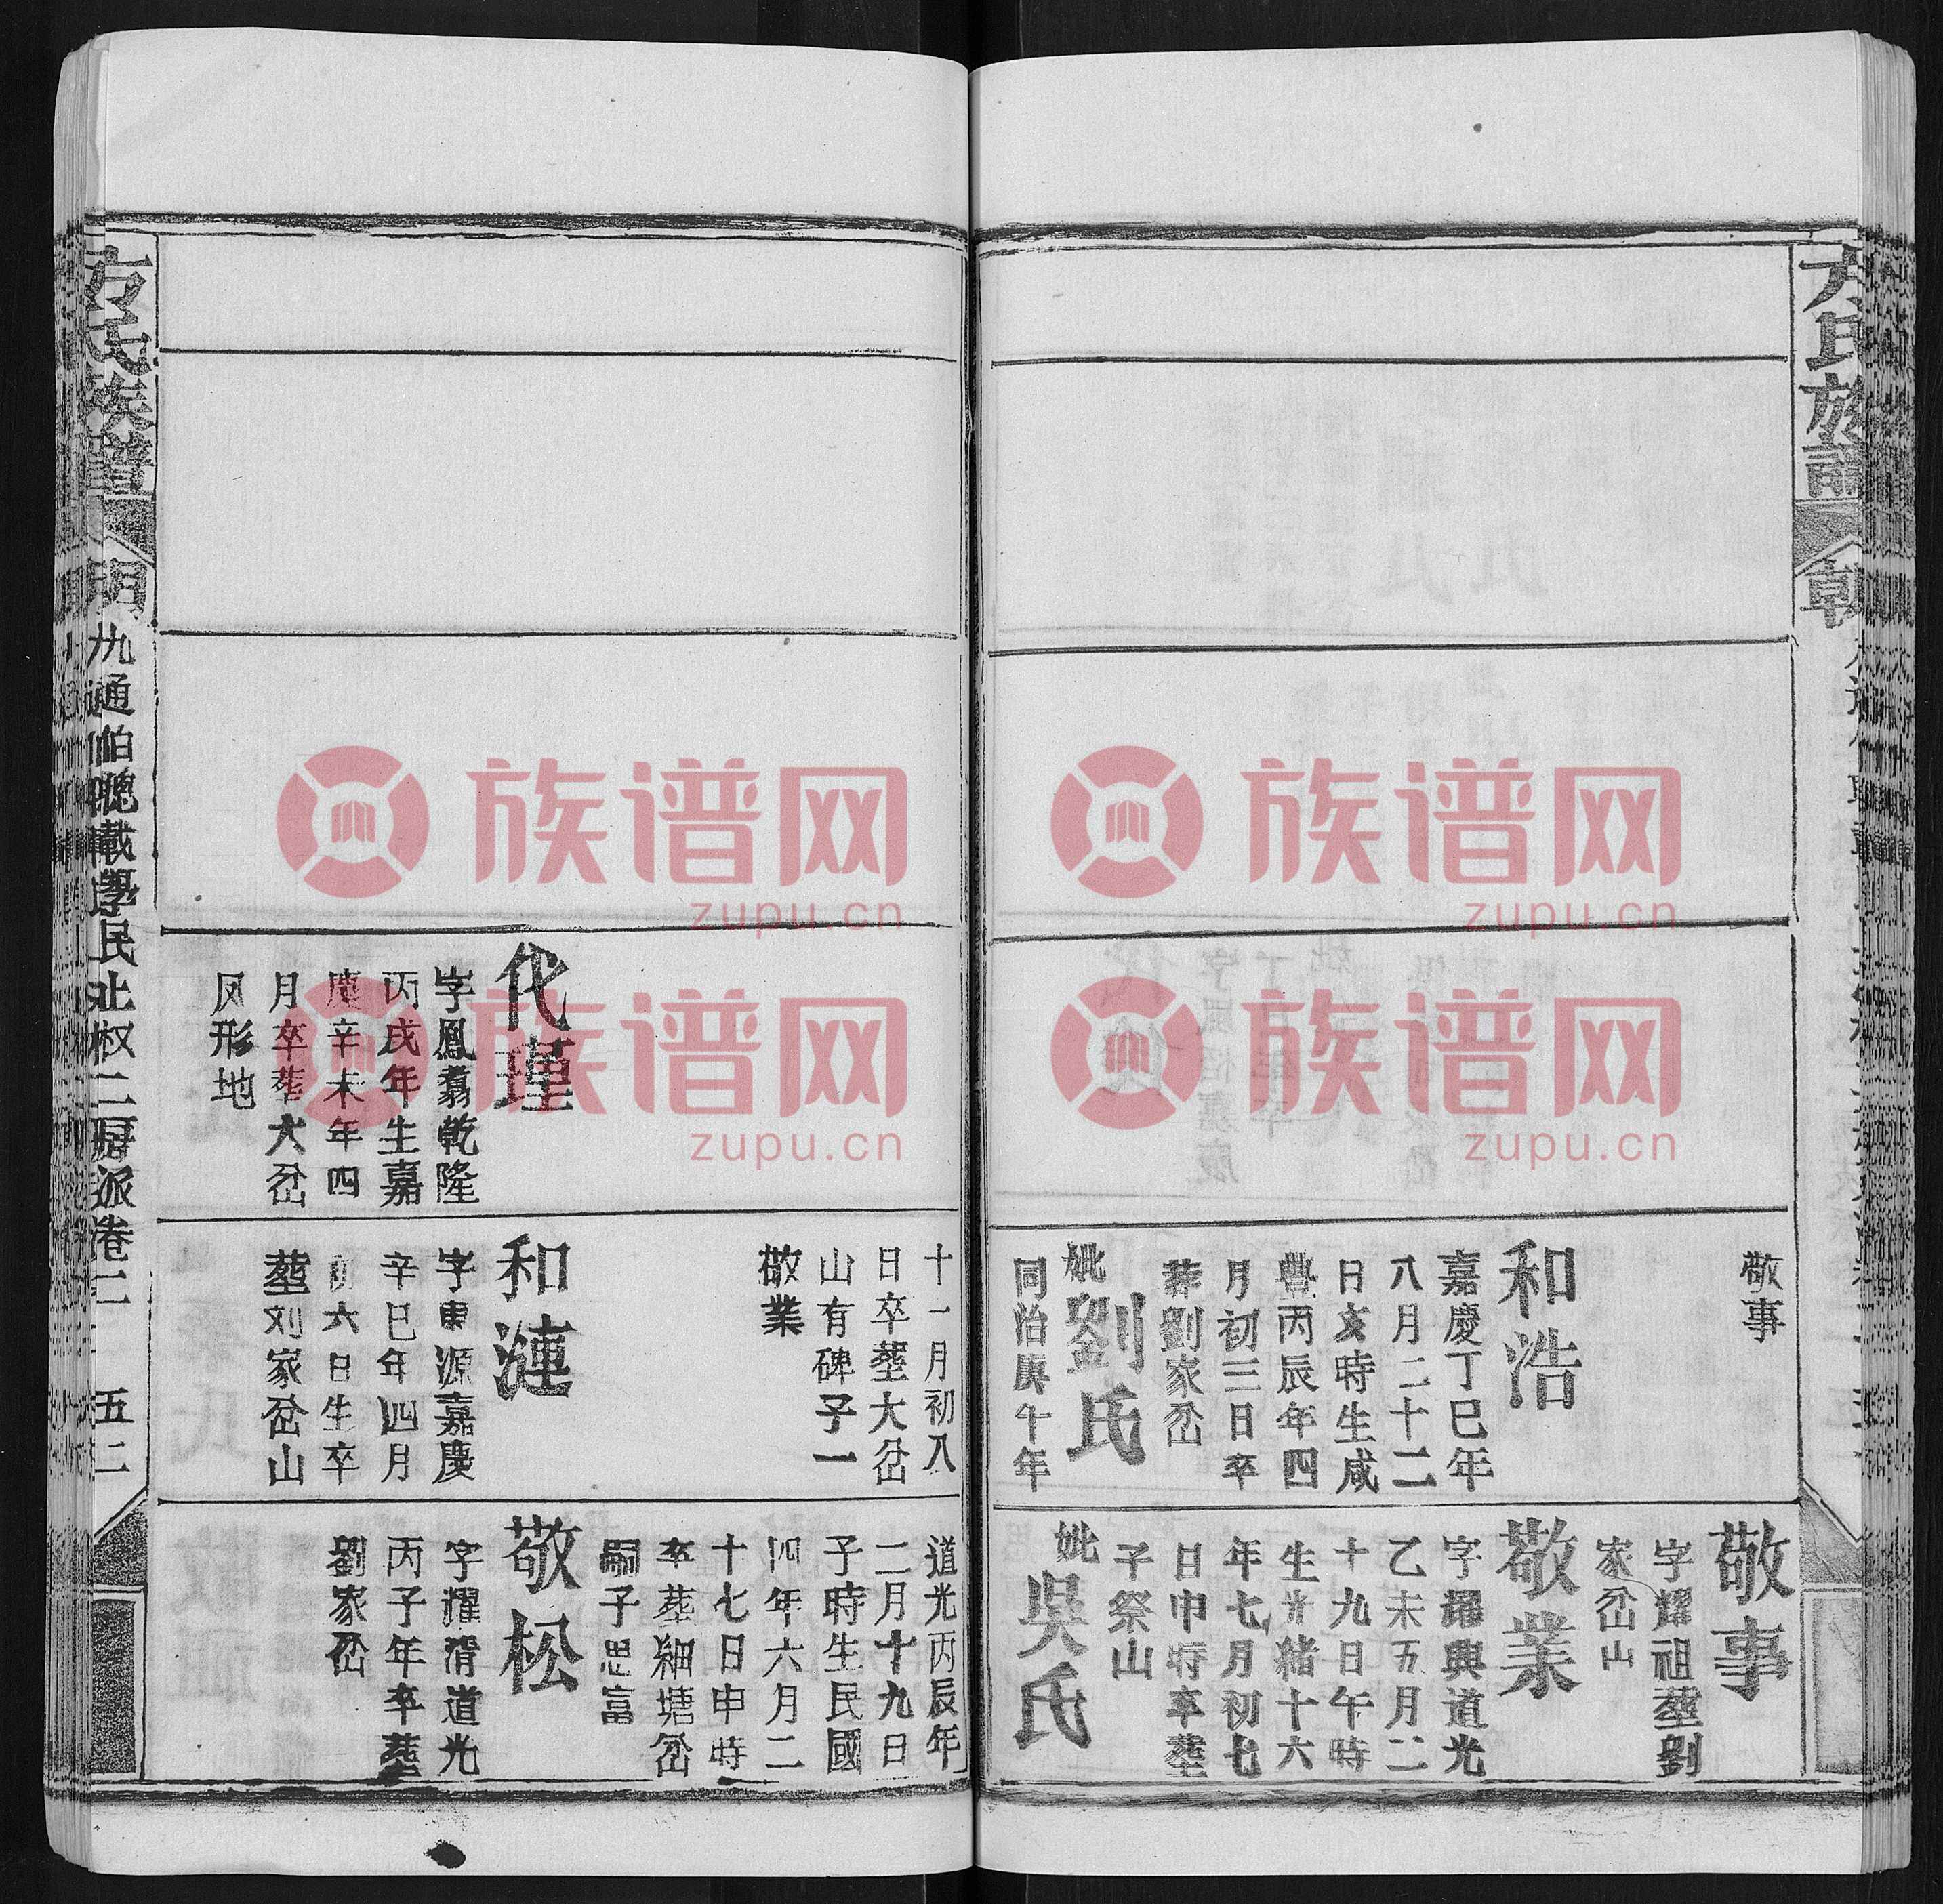 方氏族譜
敬事
和浩
嘉慶丁巳年
八月二十二
日亥時生咸
豊丙辰年四
月初三日卒
葬劉家岔
妣劉氏
同治庚午年
敬事
字耀祖塟劉
家岔山
敬業
字耀興道光
乙未五月二
十九日午時
生光緒十六
年七月初七
日申時卒塟
子祭山
妣吳氏
十一月初八
日卒塟大岔
山有碑子一
敬業
道光丙辰年
二月十九日
子時生民國
四年六月二
十七日申時
卒葬細塘岔
嗣子思富
代瑾
字鳳翥乾隆
丙戌年生嘉
慶辛未年四
月卒塟大岔
凤形地
和漣
字東源嘉慶
辛巳年四月
初六日生卒
塟刘家岔山
敬松
字耀清道光
丙子年卒塟
劉家岔
方氏族譜
九通伯聰載學民止权二房派卷二
五二
族谱网
zupu.cn
族谱网
zupu.cn
族谱网
zupu.cn
族谱网
zupu.cn